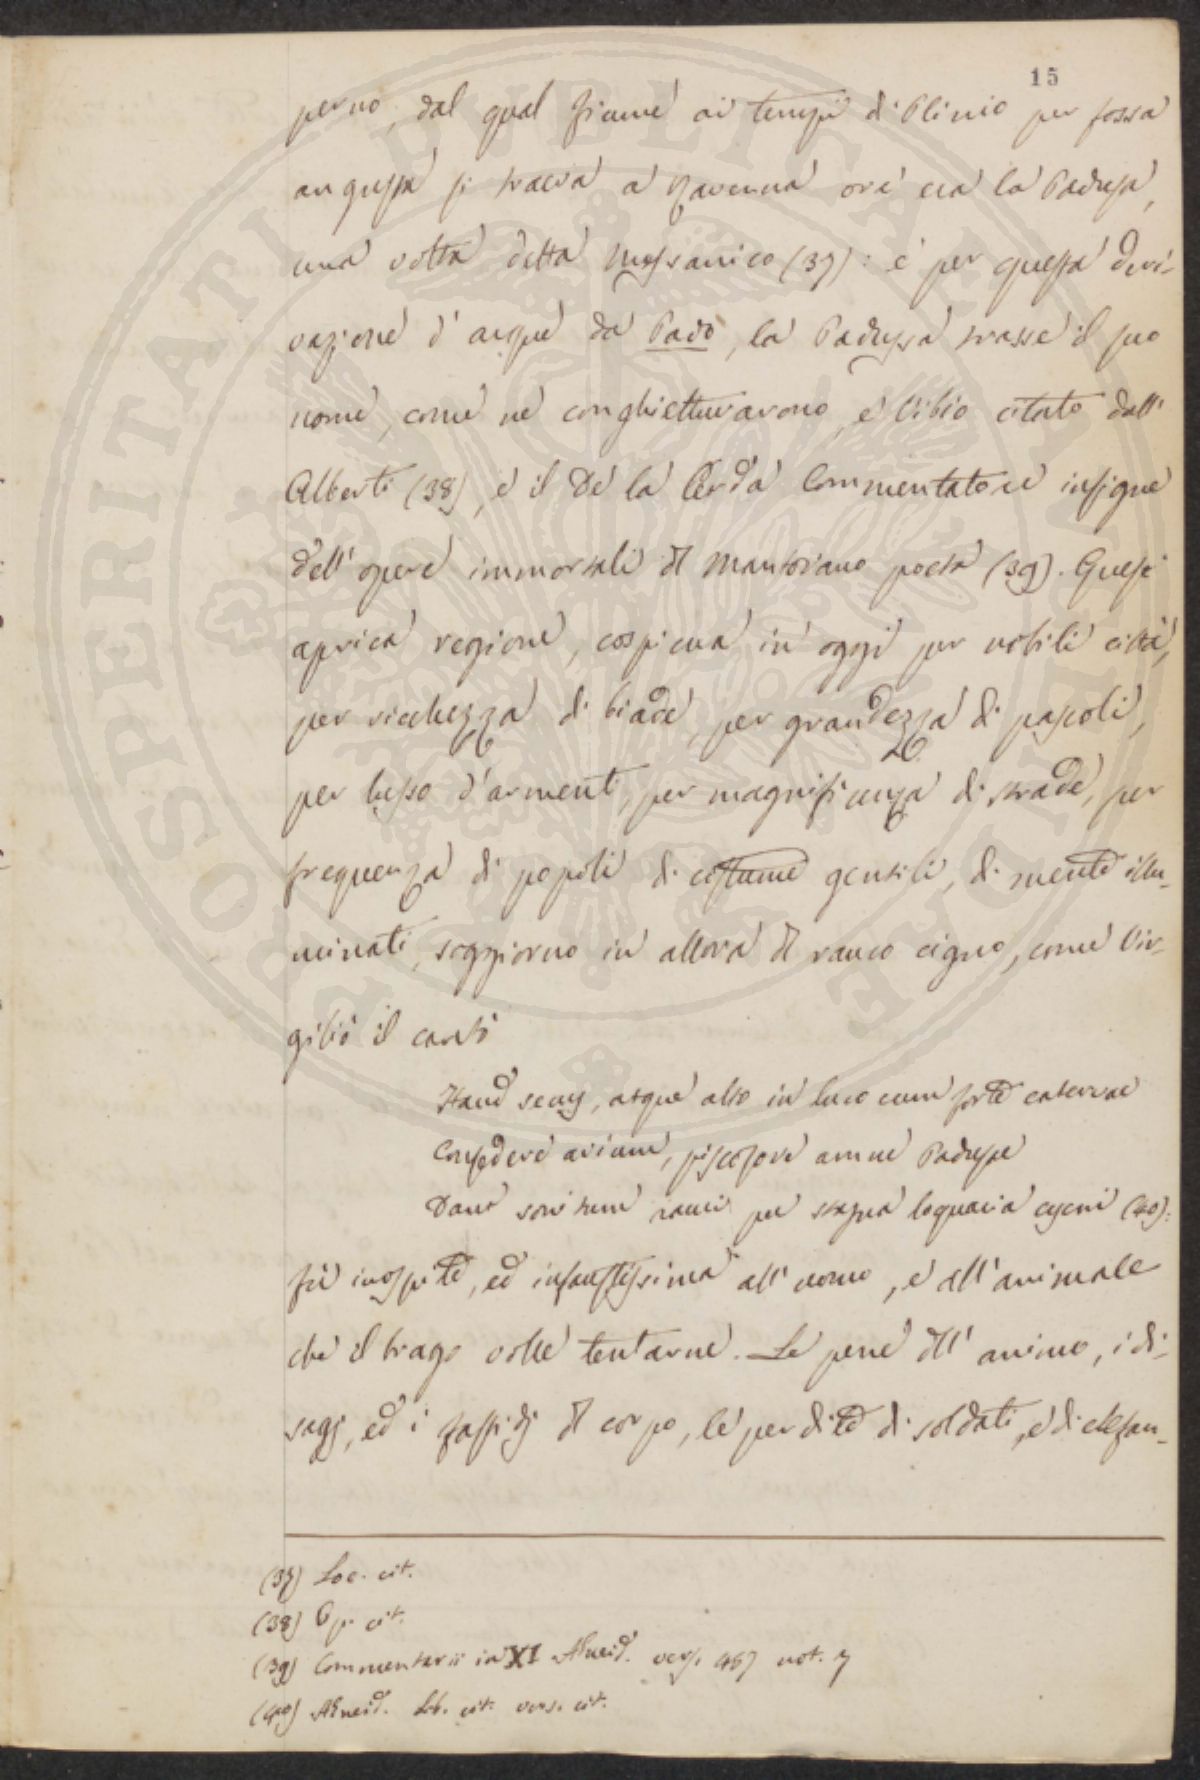 15
perno, dal qual fiume ai tempi di Plinio per fossa
angusta si traeva a Ravenna ove era la Padusa,
una volta detta Messanico (37): e per questa deri-
vazione d'acque da Pado, la Padussa trasse il suo
nome, come ne conghietturarono, e Vibio citato dall'
Alberti (38), e il De la Cerda Commentatore insigne
dell'opere immortali dl Mantovano poeta (39). Quest'
aprica regione, cospicua in oggi per nobili città,
per ricchezza di biade, per grandezza di pascoli,
per lusso d'armenti, per magnificenza di strade, per
frequenza di popoli di costume gentili, di mente illu-
minati, soggiorno in allora dl rauco cigno, come Vir-
gilio il cantò
Haud secus, atque alto in luco cum forte catervae
Consedere avium, piscosove amne Padusae
Dant sonitum rauci per stagna loquacia cycni (40):
fù inospite, ed infaustissima all'uomo, e all'animale
che il tragо volle tentarne. Le pene dll'animo, i di-
sagj, ed i fastidj dl corpo, le perdite di soldati, e di elefan-
(37) Loc. cit.
(38) Op. cit.
(39) Commentarii in XI Aeneid. vers. 457 not. 7
(40) Aeneid. Lib. cit. vers. cit.
PROSPERITATI PUBLICAE AUGENDAE